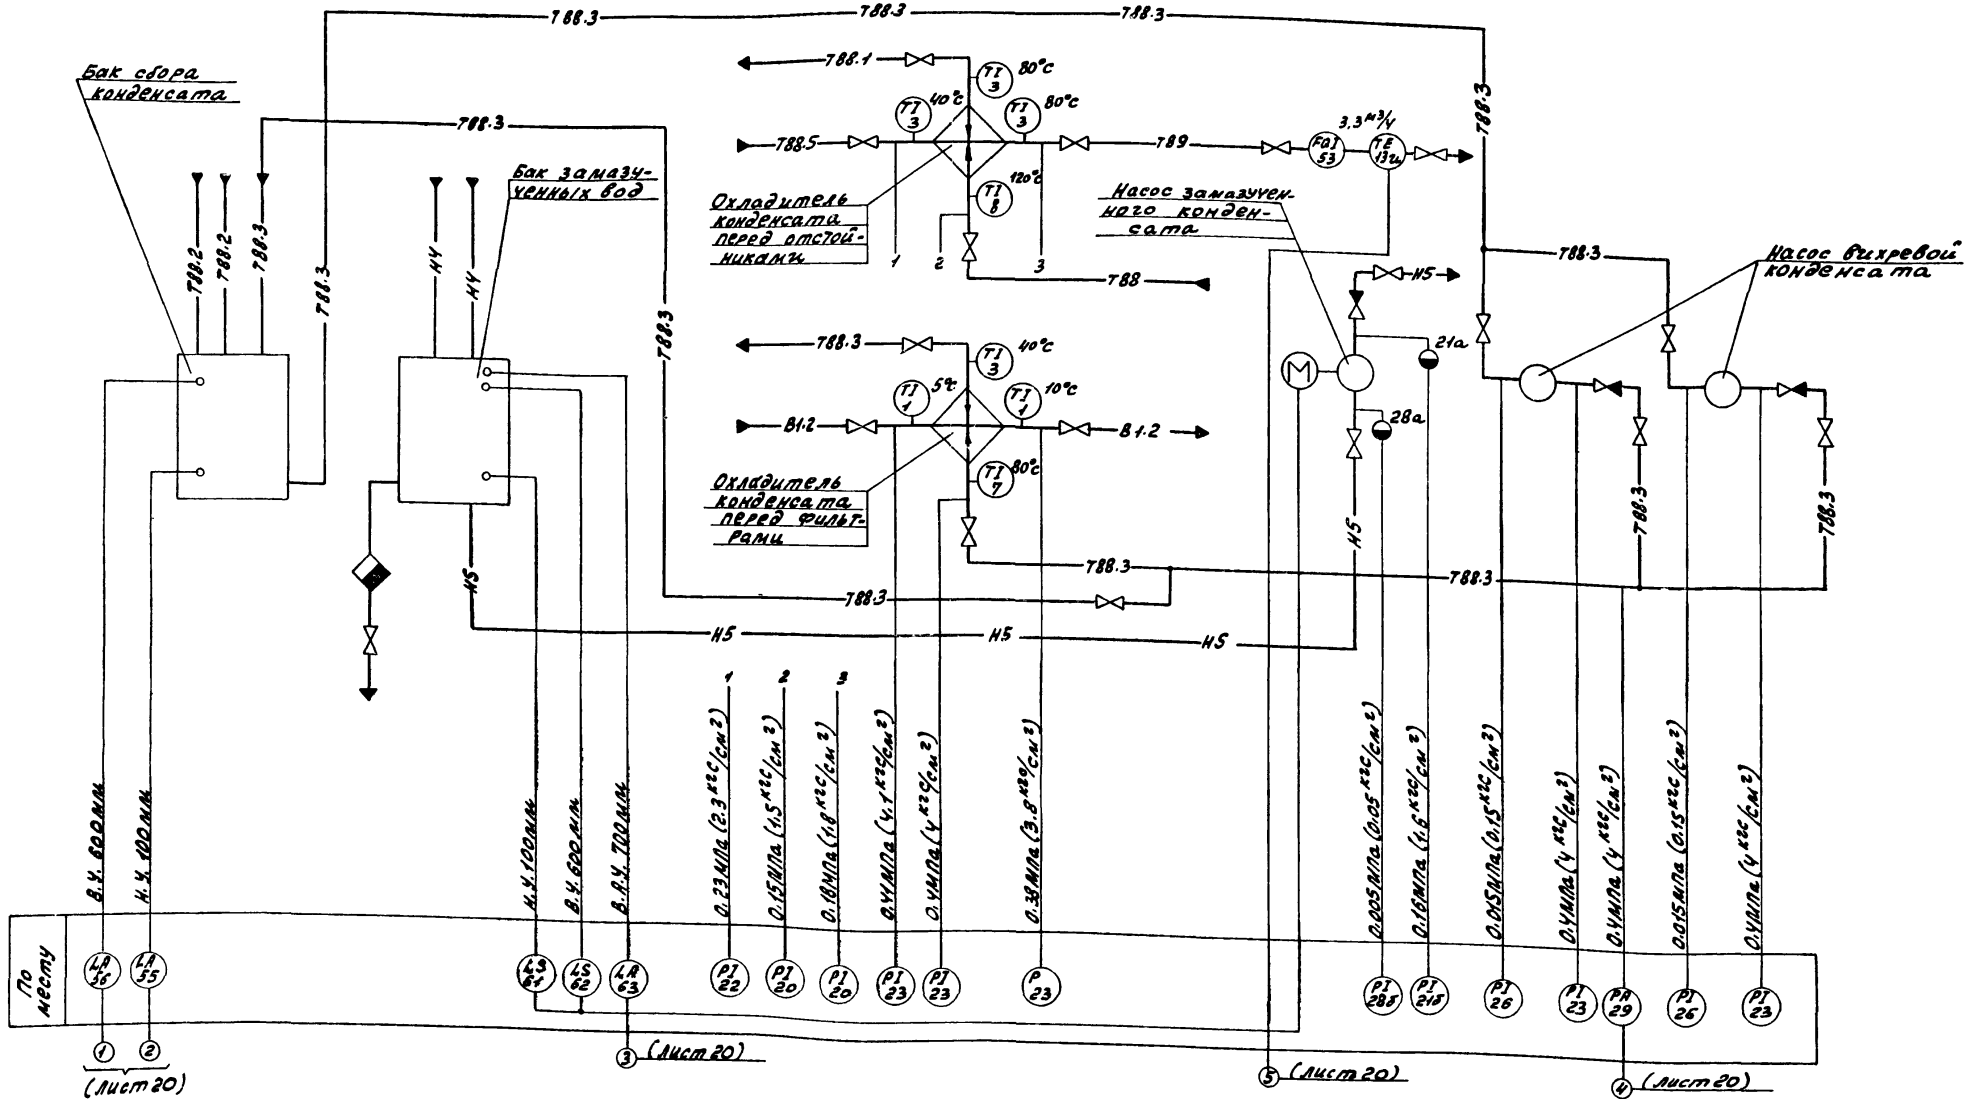 Т88.3
Т88.3
Т88.3
Бак сбора
конденсата
Т88.3
Т88.2
Т88.2
Т88.3
Т88.3
Бак замазу-
ченных вод
Н4
Н4
Т88.3
Т88.1
TI
3
80°С
40°С
TI
3
TI
3
80°С
Т88.5
Т89
3,3 м³/ч
FQI
53
TE
13и
Охладитель
конденсата
перед отстой-
никами
120°С
TI
8
1
2
3
Т88
Насос замазучен-
ного конден-
сата
Н5
Т88.3
Т88.3
Насос вихревой
конденсата
Т88.3
TI
3
40°С
5°С
TI
1
TI
1
10°С
В1.2
В1.2
Охладитель
конденсата
перед фильт-
рами
80°С
TI
7
М
21а
28а
Н5
Т88.3
Т88.3
Т88.3
Т88.3
Т88.3
Н5
Н5
Н5
Н5
1
2
3
В.У. 600мм
Н.У. 100мм
Н.У. 100мм
В.У. 600мм
В.А.У. 700мм
0.23МПа (2.3 кгс/см²)
0.15МПа (1.5 кгс/см²)
0.18МПа (1.8 кгс/см²)
0.4МПа (4.1 кгс/см²)
0.4МПа (4 кгс/см²)
0.38МПа (3.8 кгс/см²)
0.005МПа (0.05 кгс/см²)
0.16МПа (1.6 кгс/см²)
0.015МПа (0.15 кгс/см²)
0.4МПа (4 кгс/см²)
0.4МПа (4 кгс/см²)
0.015МПа (0.15 кгс/см²)
0.4МПа (4 кгс/см²)
По
месту
LA
56
LA
55
LS
61
LS
62
LA
63
PI
22
PI
20
PI
20
PI
23
PI
23
P
23
PI
28б
PI
21б
PI
26
PI
23
PA
29
PI
26
PI
23
1
2
(лист 20)
3 (лист 20)
5 (лист 20)
4 (лист 20)